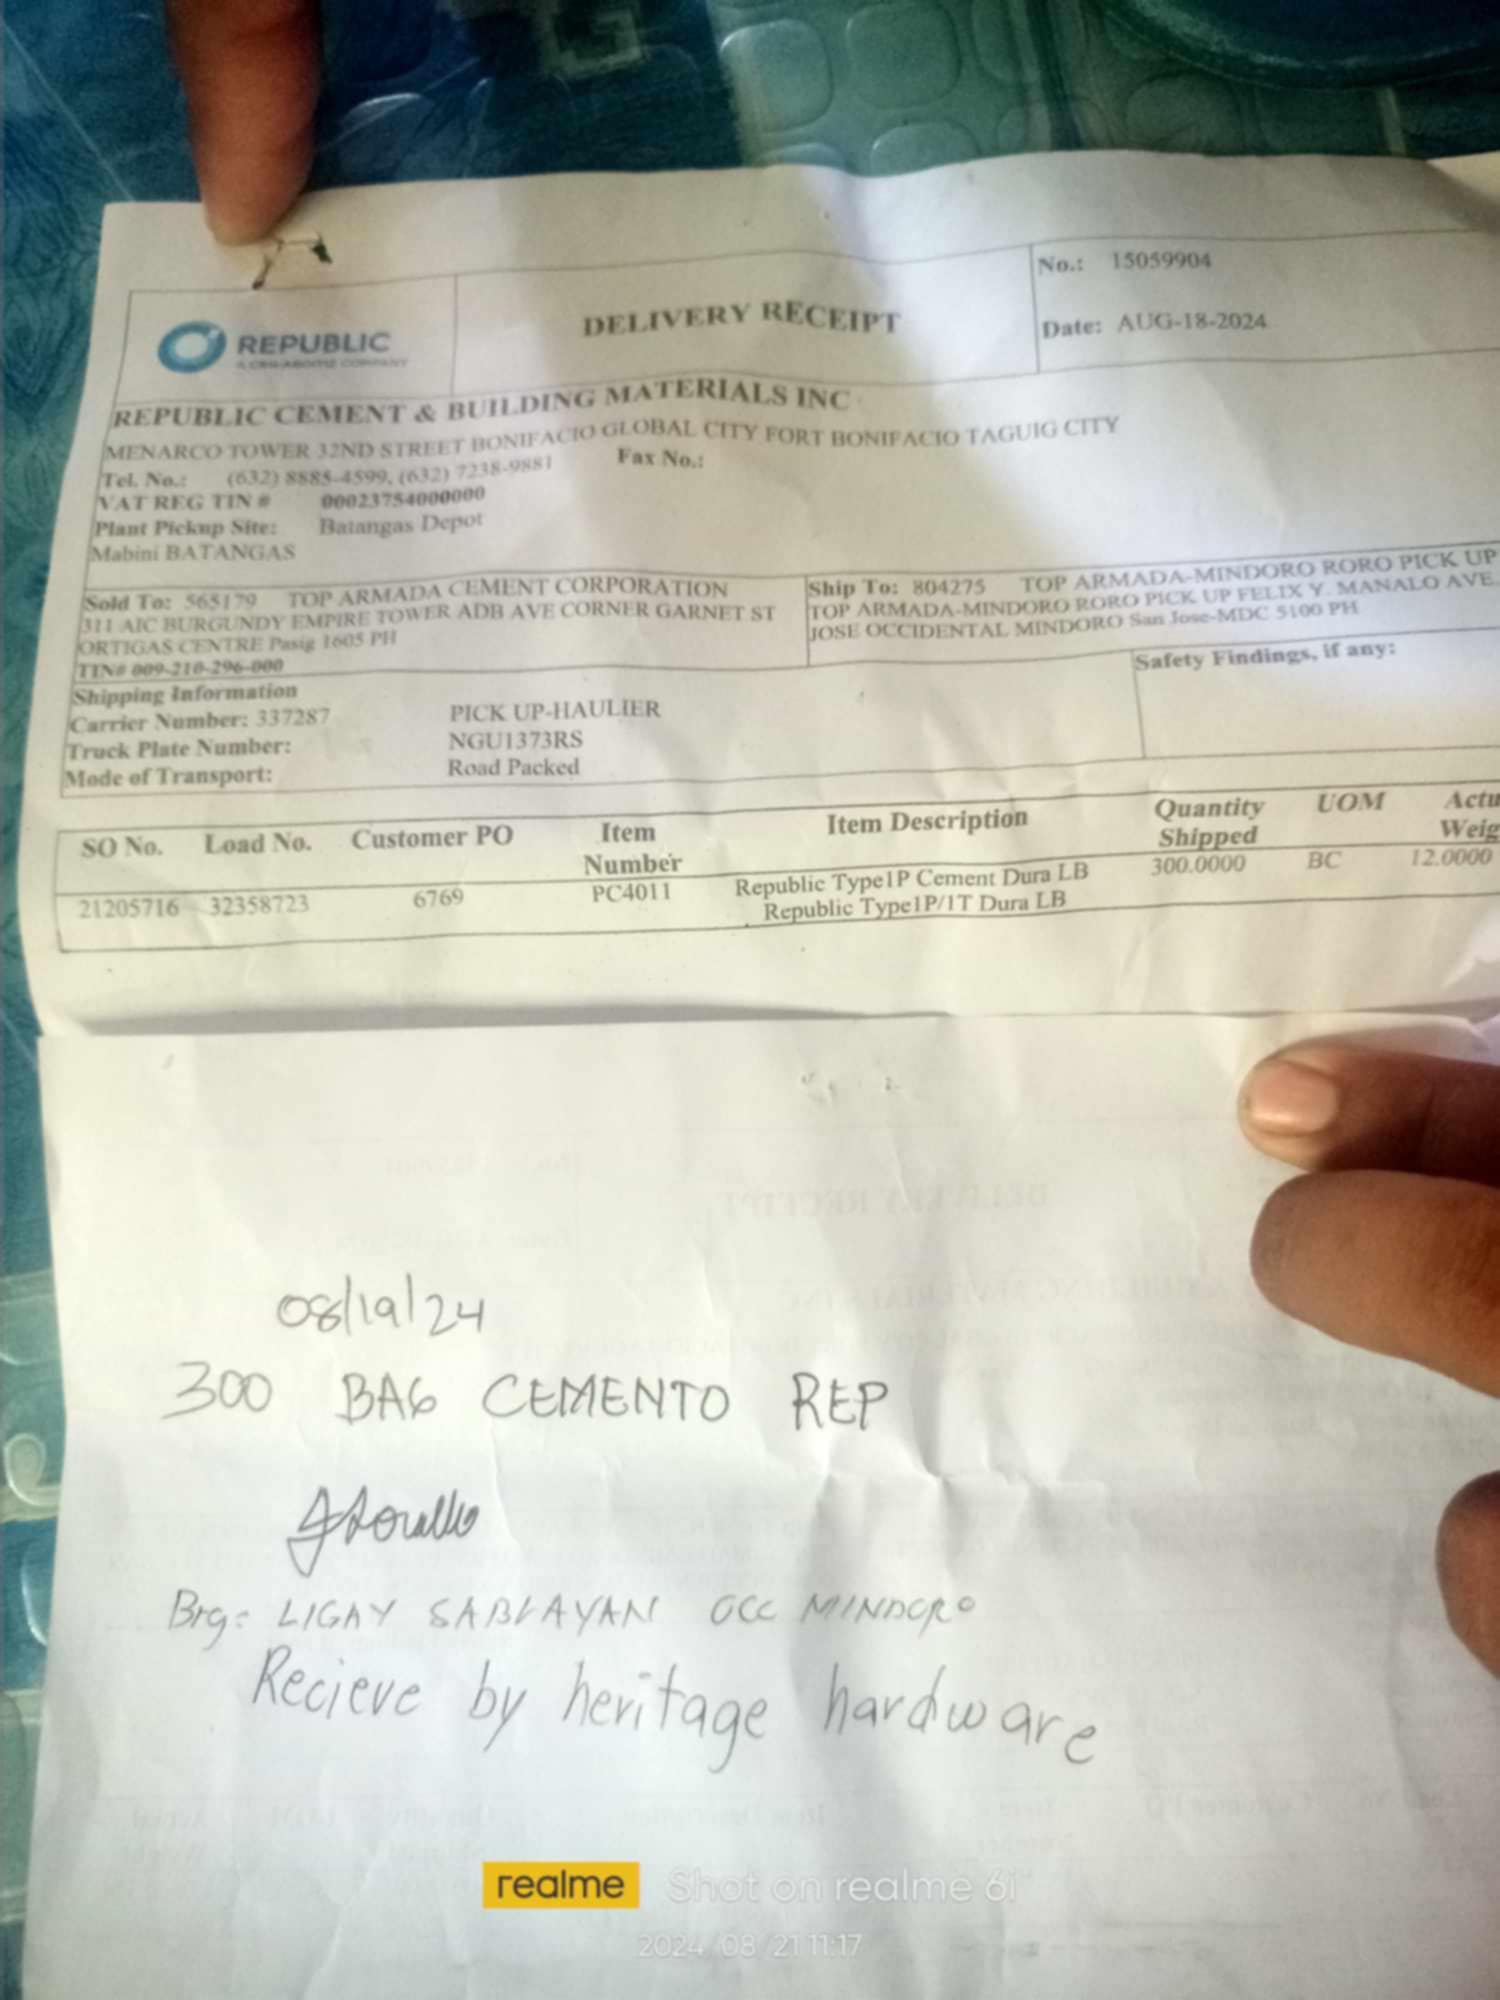 No.: 15059904
DELIVERY RECEIPT
Date: AUG-18-2024
REPUBLIC
A CRH-ABOITIZ COMPANY
REPUBLIC CEMENT & BUILDING MATERIALS INC
MENARCO TOWER 32ND STREET BONIFACIO GLOBAL CITY FORT BONIFACIO TAGUIG CITY
Tel. No.: (632) 8885-4599, (632) 7238-9881 Fax No.:
VAT REG TIN # 00023754000000
Plant Pickup Site: Batangas Depot
Mabini BATANGAS
Sold To: 565179 TOP ARMADA CEMENT CORPORATION
311 AIC BURGUNDY EMPIRE TOWER ADB AVE CORNER GARNET ST
ORTIGAS CENTRE Pasig 1605 PH
TIN# 009-210-296-000
Ship To: 804275 TOP ARMADA-MINDORO RORO PICK UP
TOP ARMADA-MINDORO RORO PICK UP FELIX Y. MANALO AVE.
JOSE OCCIDENTAL MINDORO San Jose-MDC 5100 PH
Safety Findings, if any:
Shipping Information
Carrier Number: 337287 PICK UP-HAULIER
Truck Plate Number: NGU1373RS
Mode of Transport: Road Packed
SO No. Load No. Customer PO Item Number Item Description Quantity Shipped UOM Actu Weig
21205716 32358723 6769 PC4011 Republic Type1P Cement Dura LB 300.0000 BC 12.0000
Republic Type1P/1T Dura LB
08/19/24
300 BAG CEMENTO REP
Brg: LIGAY SABLAYAN OCC MINDORO
Recieve by heritage hardware
realme Shot on realme 6i
2024/08/21 11:17